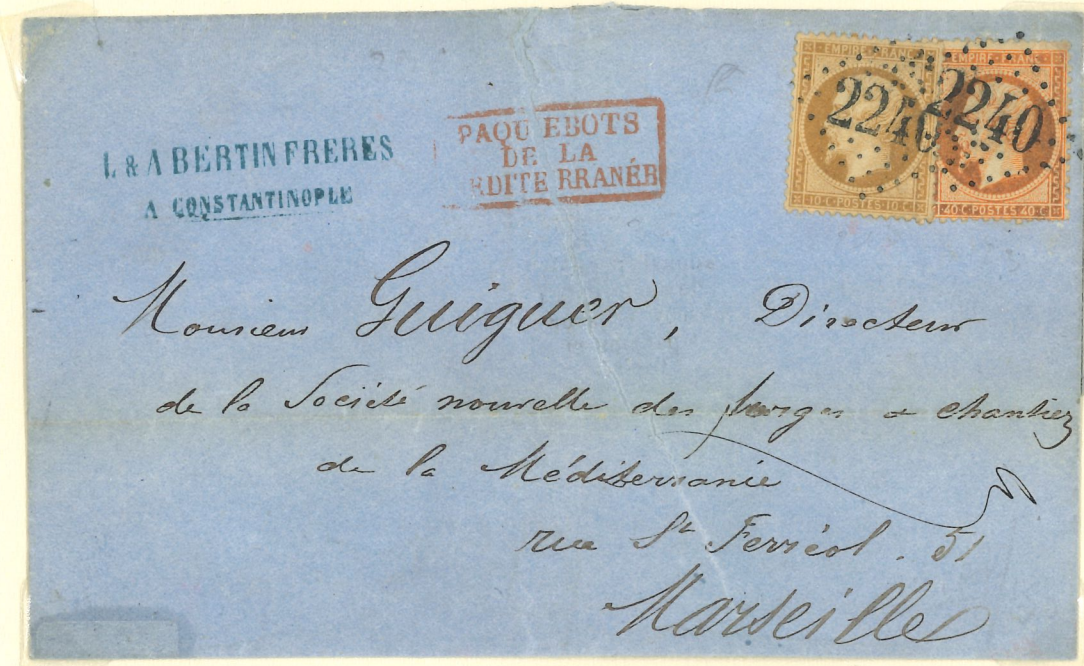 L & A BERTIN FRERES
A CONSTANTINOPLE
PAQUEBOTS
DE LA
RDITERRANÉE
EMPIRE FRANC
2240
10 C POSTES 10 C
EMPIRE FRANC
2240
40 C POSTES 40 C
Monsieur Guiguer, Directeur
de la Société nouvelle des forges & chantiez
de la Méditerranée
rue St Ferréol . 51
Marseille